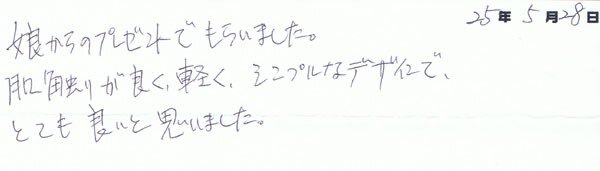 25年 5月28日
娘からのプレゼントでもらいました。
肌触りが良く、軽く、シンプルなデザインで、
とても良いと思いました。